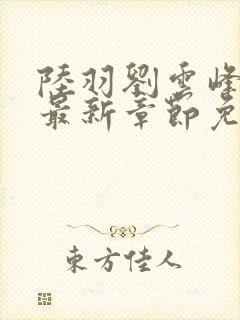 陸羽劉雲峰
最新章節免
東方佳人